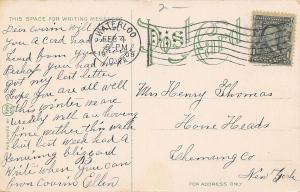 2-
THIS SPACE FOR WRITING MESSAGES
Dear cousin will
you a card
heard from you
Perhaps you had not
got my last letter
Hope you are all well
this winter we are
well are having
fine weather this week
but last week had a
Genuine blizzard
Write when you can
from cousin Ellen
WATERLOO
FEB 4
PM
IOWA
Post Card
Mrs Henry Thomas
Horse Heads
Chemung Co
New York
FOR ADDRESS ONLY